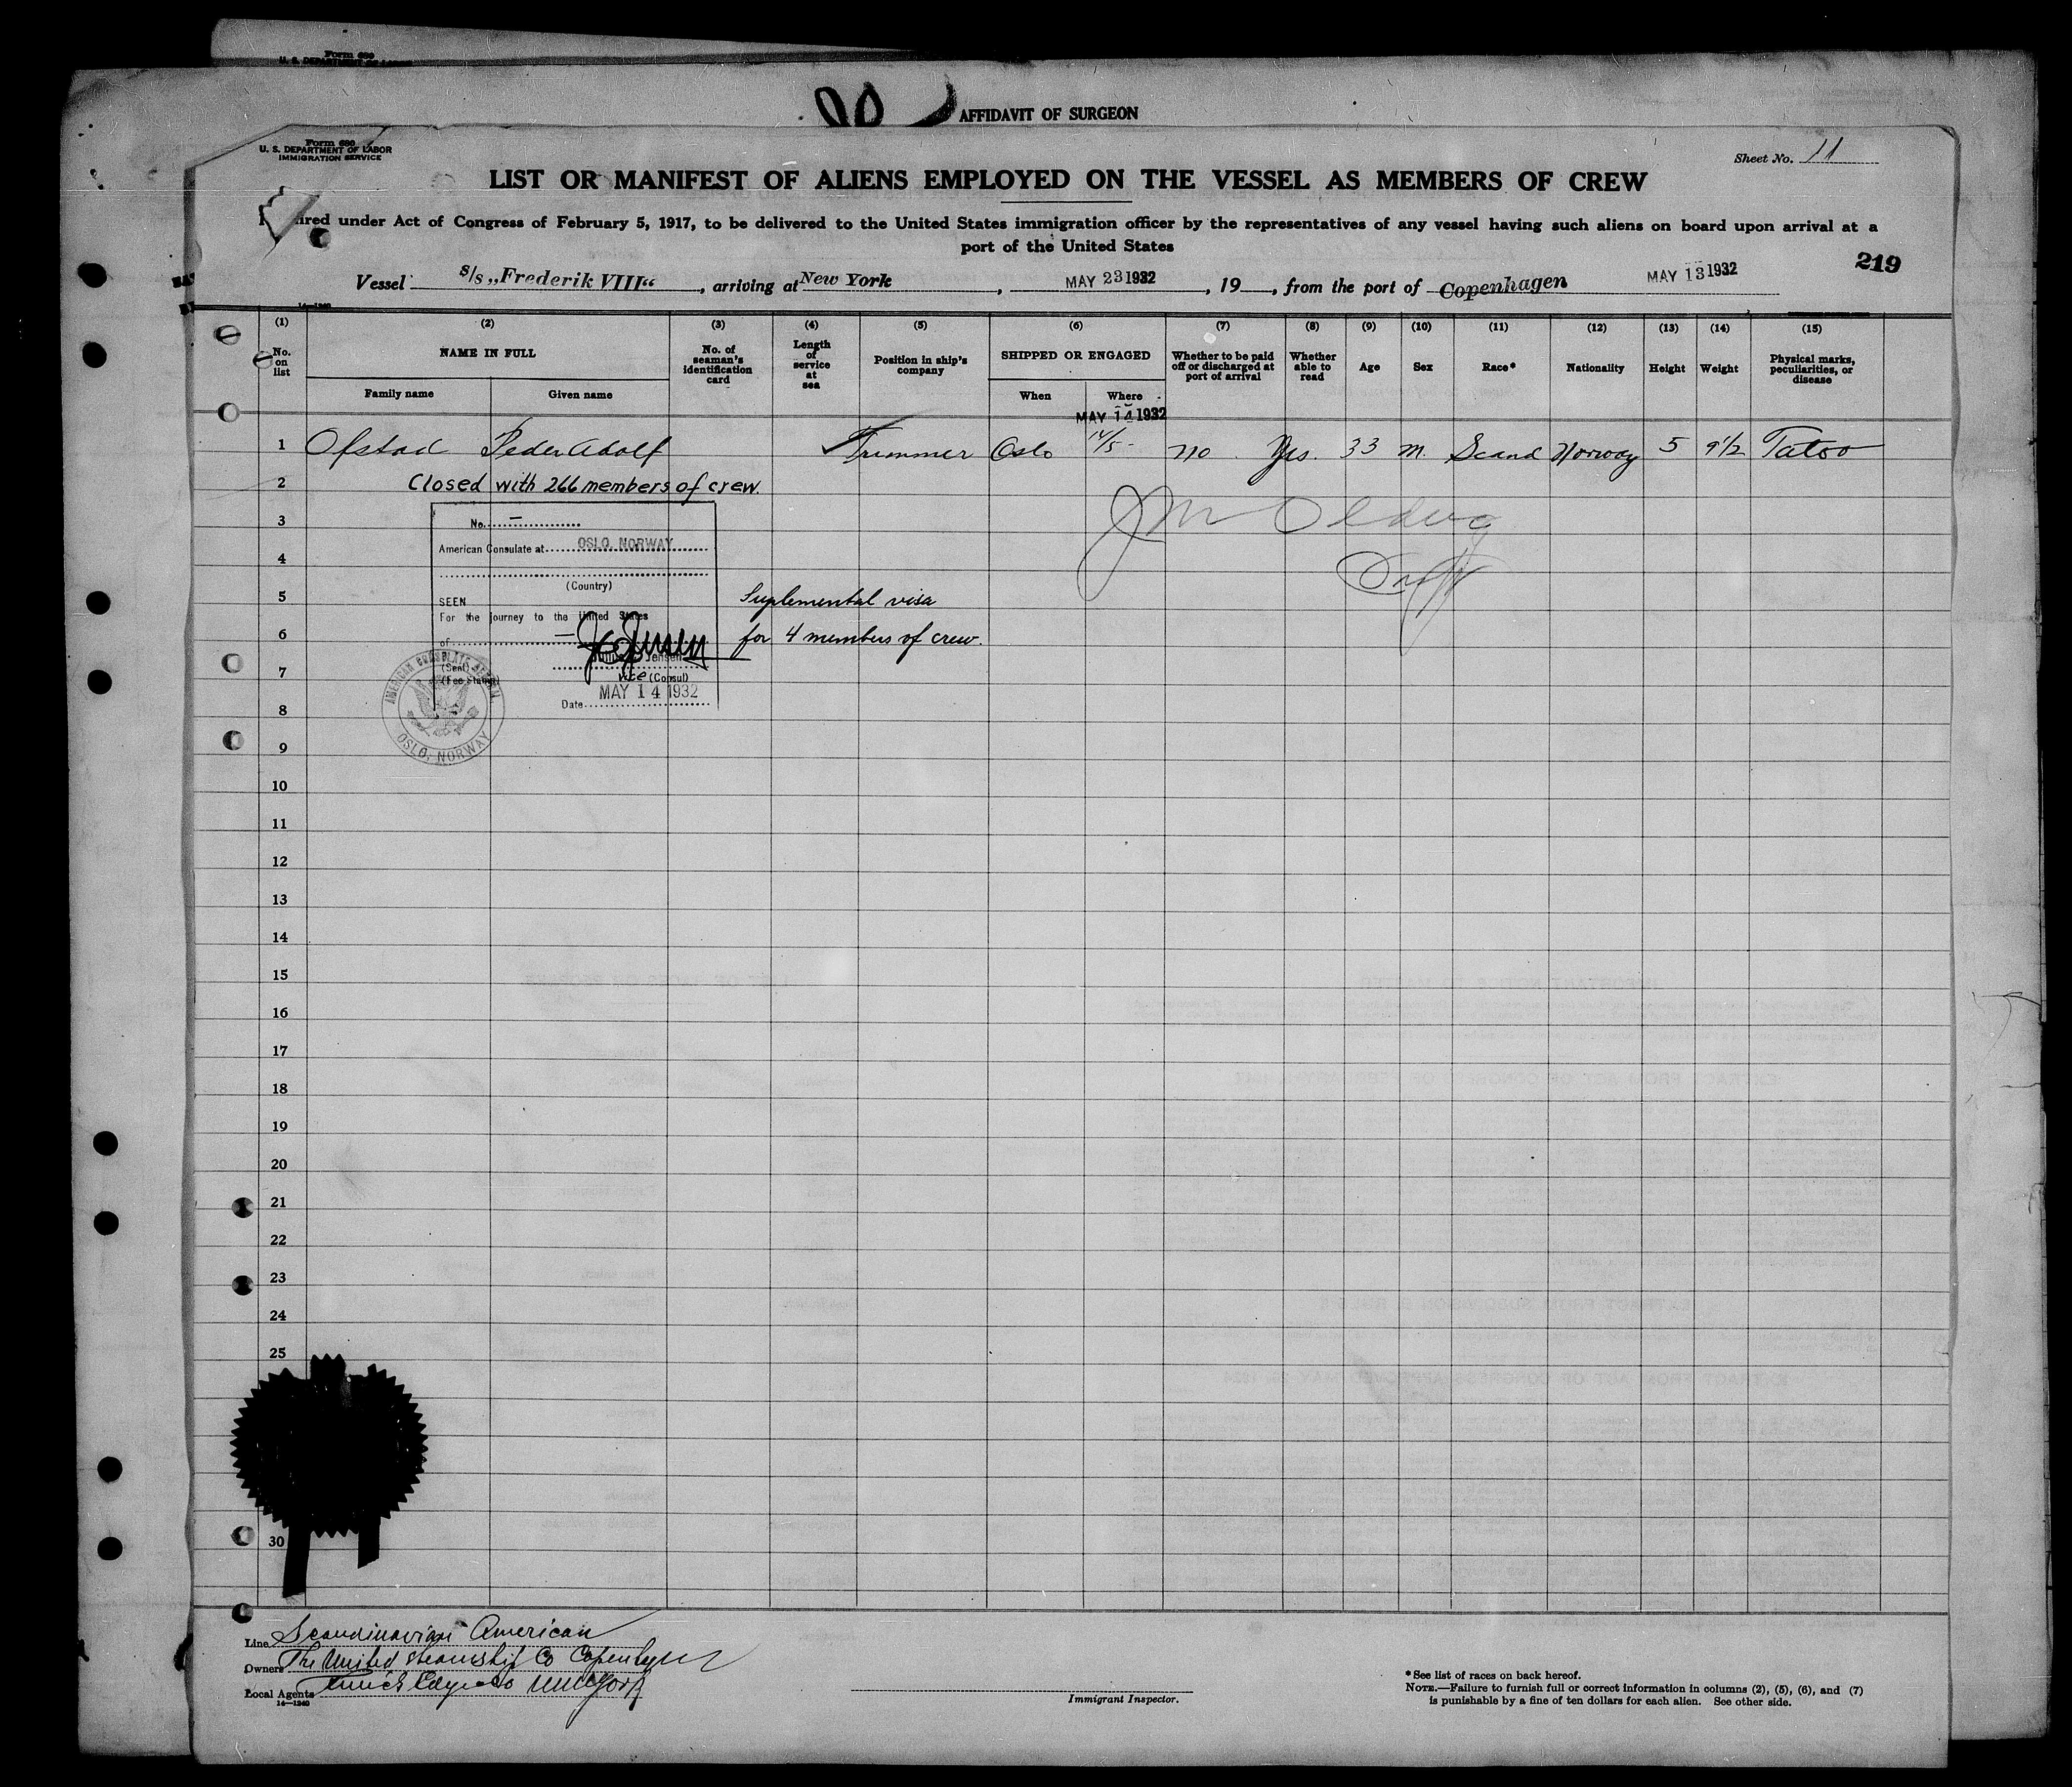 Form 680
U. S. DEPARTMENT OF LABOR
AFFIDAVIT OF SURGEON
Form 680
U. S. DEPARTMENT OF LABOR
IMMIGRATION SERVICE
Sheet No. 11
LIST OR MANIFEST OF ALIENS EMPLOYED ON THE VESSEL AS MEMBERS OF CREW
ired under Act of Congress of February 5, 1917, to be delivered to the United States immigration officer by the representatives of any vessel having such aliens on board upon arrival at a
port of the United States
219
Vessel S/s „Frederik VIII“, arriving at New York, MAY 23 1932, 19 , from the port of Copenhagen MAY 13 1932
14—1240
(1) (2) (3) (4) (5) (6) (7) (8) (9) (10) (11) (12) (13) (14) (15)
No. on list NAME IN FULL No. of seaman's identification card Length of service at sea Position in ship's company SHIPPED OR ENGAGED Whether to be paid off or discharged at port of arrival Whether able to read Age Sex Race* Nationality Height Weight Physical marks, peculiarities, or disease
Family name Given name When Where
MAY 14 1932
1 Ofstad Peder Adolf Trimmer Oslo 14/5- no Yes. 33 m. Scand Norway 5 9 1/2 Tatoo
2 Closed with 266 members of crew.
3 No. –
4 American Consulate at OSLO, NORWAY
(Country)
5 SEEN Suplemental visa
For the journey to the United States
6 of — for 4 members of crew.
Jensen
7 (Seal)
(Fee Stamp) Vice (Consul)
MAY 14 1932
8 Date
AMERICAN CONSULATE GENERAL
OSLO, NORWAY
9
10
11
12
13
14
15
16
17
18
19
20
21
22
23
24
25
30
Line Scandinavian American
Owners The United Steamship Co Copenhagen
Local Agents New York
14—1240
Immigrant Inspector.
* See list of races on back hereof.
NOTE.—Failure to furnish full or correct information in columns (2), (5), (6), and (7)
is punishable by a fine of ten dollars for each alien. See other side.